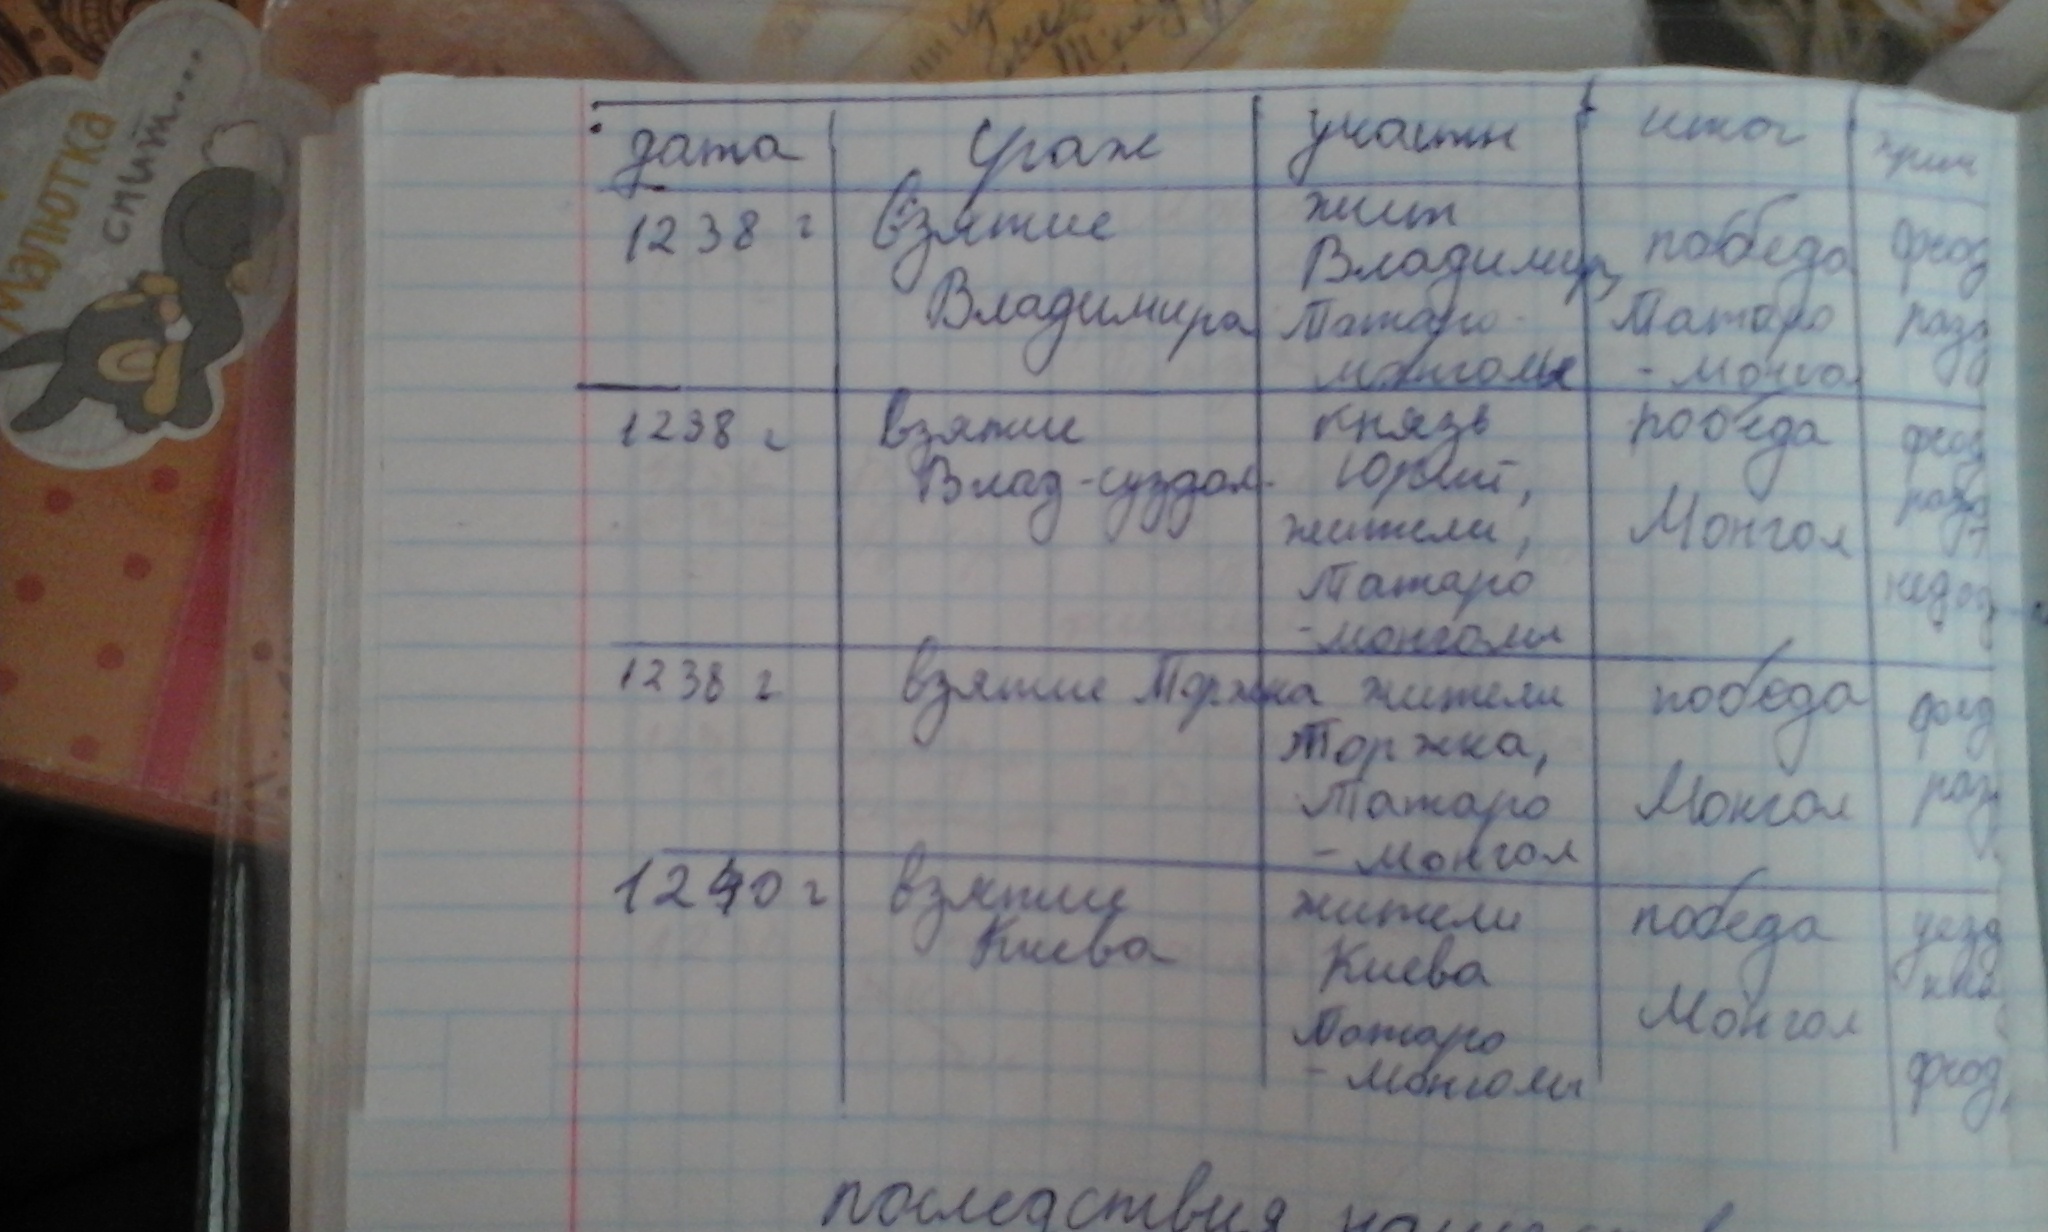 Малютка
спит...
дата сраж участн итог прич
1238 г взятие Владимира жит Владимир, Татаро-монголы победа Татаро-монгол феод разд
1238 г взятие Влад-суздал. князь Юрий, жители, Татаро-монголы победа Монгол феод разд, недоо
1238 г взятие Торжка жители Торжка, Татаро-монгол победа Монгол феод раз
1240 г взятие Киева жители Киева Татаро-монголы победа Монгол уезд кня феод,
последствия